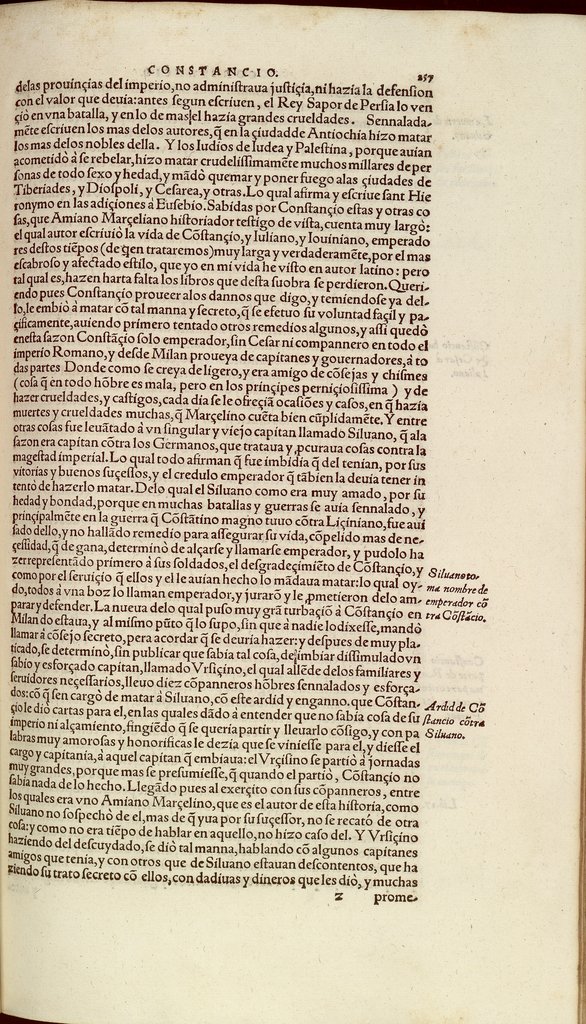 CONSTANCIO.
257
delas prouinçias del imperio, no administraua justiçia, ni hazia la defension
con el valor que deuia: antes segun escriuen, el Rey Sapor de Persia lo ven
çiò en vna batalla, y en lo de mas, el hazia grandes crueldades. Sennalada-
mẽte escriuen los mas delos autores, q̃ en la çiudad de Antiochia hizo matar
los mas delos nobles della. Y los Iudios de Iudea y Palestina, porque auian
acometidò a se rebelar, hizo matar crudelissimamẽte muchos millares de per
sonas de todo sexo y hedad, y mãdò quemar y poner fuego alas çiudades de
Tiberiades, y Diospoli, y Cesarea, y otras. Lo qual afirma y escriue sant Hie
ronymo en las adiçiones à Eusebio. Sabidas por Constançio estas y otras co
sas, que Amiano Marçeliano historiador testigo de vista, cuenta muy largo:
el qual autor escriuiò la vida de Cõstançio, y Iuliano, y Iouiniano, emperado
res destos tiẽpos (de q̃en trataremos) muy larga y verdaderamẽte, por el mas
escabroso y afectado estilo, que yo en mi vida he visto en autor latino: pero
tal qual es, hazen harta falta los libros que desta su obra se perdieron. Queri-
endo pues Constançio proueer alos dannos que digo, y temiendose ya del-
lo, le embiò à matar cõ tal manna y secreto, q̃ se efetuo su voluntad façil y pa-
çificamente, auiendo primero tentado otros remedios algunos, y assi quedò
en esta sazon Constãçio solo emperador, sin Cesar ni compannero en todo el
imperio Romano, y desde Milan proueya de capitanes y gouernadores, à to
das partes Donde como se creya de ligero, y era amigo de cõsejas y chismes
(cosa q̃ en todo hõbre es mala, pero en los prinçipes perniçiosissima) y de
hazer crueldades, y castigos, cada dia se le ofreçiã ocasiões y casos, en q̃ hazia
muertes y crueldades muchas, q̃ Marçelino cuẽta bien cũplidamẽte. Y entre
otras cosas fue leuãtado à vn singular y viejo capitan llamado Siluano, q̃ ala
sazon era capitan cõtra los Germanos, que trataua y ꝓcuraua cosas contra la
magestad imperial. Lo qual todo afirman q̃ fue imbidia q̃ del tenian, por sus
vitorias y buenos suçessos, y el credulo emperador q̃ tãbien la deuia tener in
tentò de hazerlo matar. Delo qual el Siluano como era muy amado, por su
hedad y bondad, porque en muchas batallas y guerras se auia sennalado, y
prinçipalmẽte en la guerra q̃ Cõstãtino magno tuuo cõtra Liçiniano, fue aui
sado dello, y no hallãdo remedio para assegurar su vida, cõpelido mas de ne-
çessidad, q̃ de gana, determinò de alçarse y llamarse emperador, y pudolo ha
zer representãdo primero à sus soldados, el desgradeçimiẽto de Constãçio, y
como por el seruiçio q̃ ellos y el le auian hecho lo mãdaua matar: lo qual oy-
do, todos à vna boz lo llaman emperador, y jurarõ y le ꝓmetieron delo am-
parar y defender. La nueua delo qual puso muy grã turbaçiõ à Constãçio en
Milan do estaua, y al mismo pũto q̃ lo supo, sin que à nadie lo dixesse, mandò
llamar à cõsejo secreto, pera acordar q̃ se deuria hazer: y despues de muy pla-
ticado, se determinò, sin publicar que sabia tal cosa, de imbiar dissimulado vn
sabio y esforçado capitan, llamado Vrsiçino, el qual allẽde delos familiares y
seruidores neçessarios, lleuo diez cõpanneros hõbres sennalados y esforça-
dos: cõ q̃sen cargò de matar à Siluano, cõ este ardid y enganno. que Cõstan-
çio le diò cartas para el, en las quales dãdo à entender que no sabia cosa de su
imperio ni alçamiento, fingiẽdo q̃ se queria partir y lleuarlo cõsigo, y con pa
labras muy amorosas y honorificas le dezia que se viniesse para el, y diesse el
cargo y capitania, à aquel capitan q̃ embiaua: el Vrsiçino se partiò à jornadas
muy grandes, porque mas se presumiesse, q̃ quando el partiò, Constançio no
sabia nada de lo hecho. Llegãdo pues al exerçito con sus cõpanneros, entre
los quales era vno Amiano Marçelino, que es el autor de esta historia, como
Siluano no sospechò de el, mas de q̃ yua por su suçessor, no se recatò de otra
cosa: y como no era tiẽpo de hablar en aquello, no hizo caso del. Y Vrsiçino
haziendo del descuydado, se diò tal manna, hablando cõ algunos capitanes
amigos que tenia, y con otros que de Siluano estauan descontentos, que ha
ziendo su trato secreto cõ ellos, con dadiuas y dineros que les diò, y muchas
z prome-
Siluano to-
ma nombre de
emperador cõ
tra Cõstãcio.
Ardid de Cõ
stancio cõtra
Siluano.